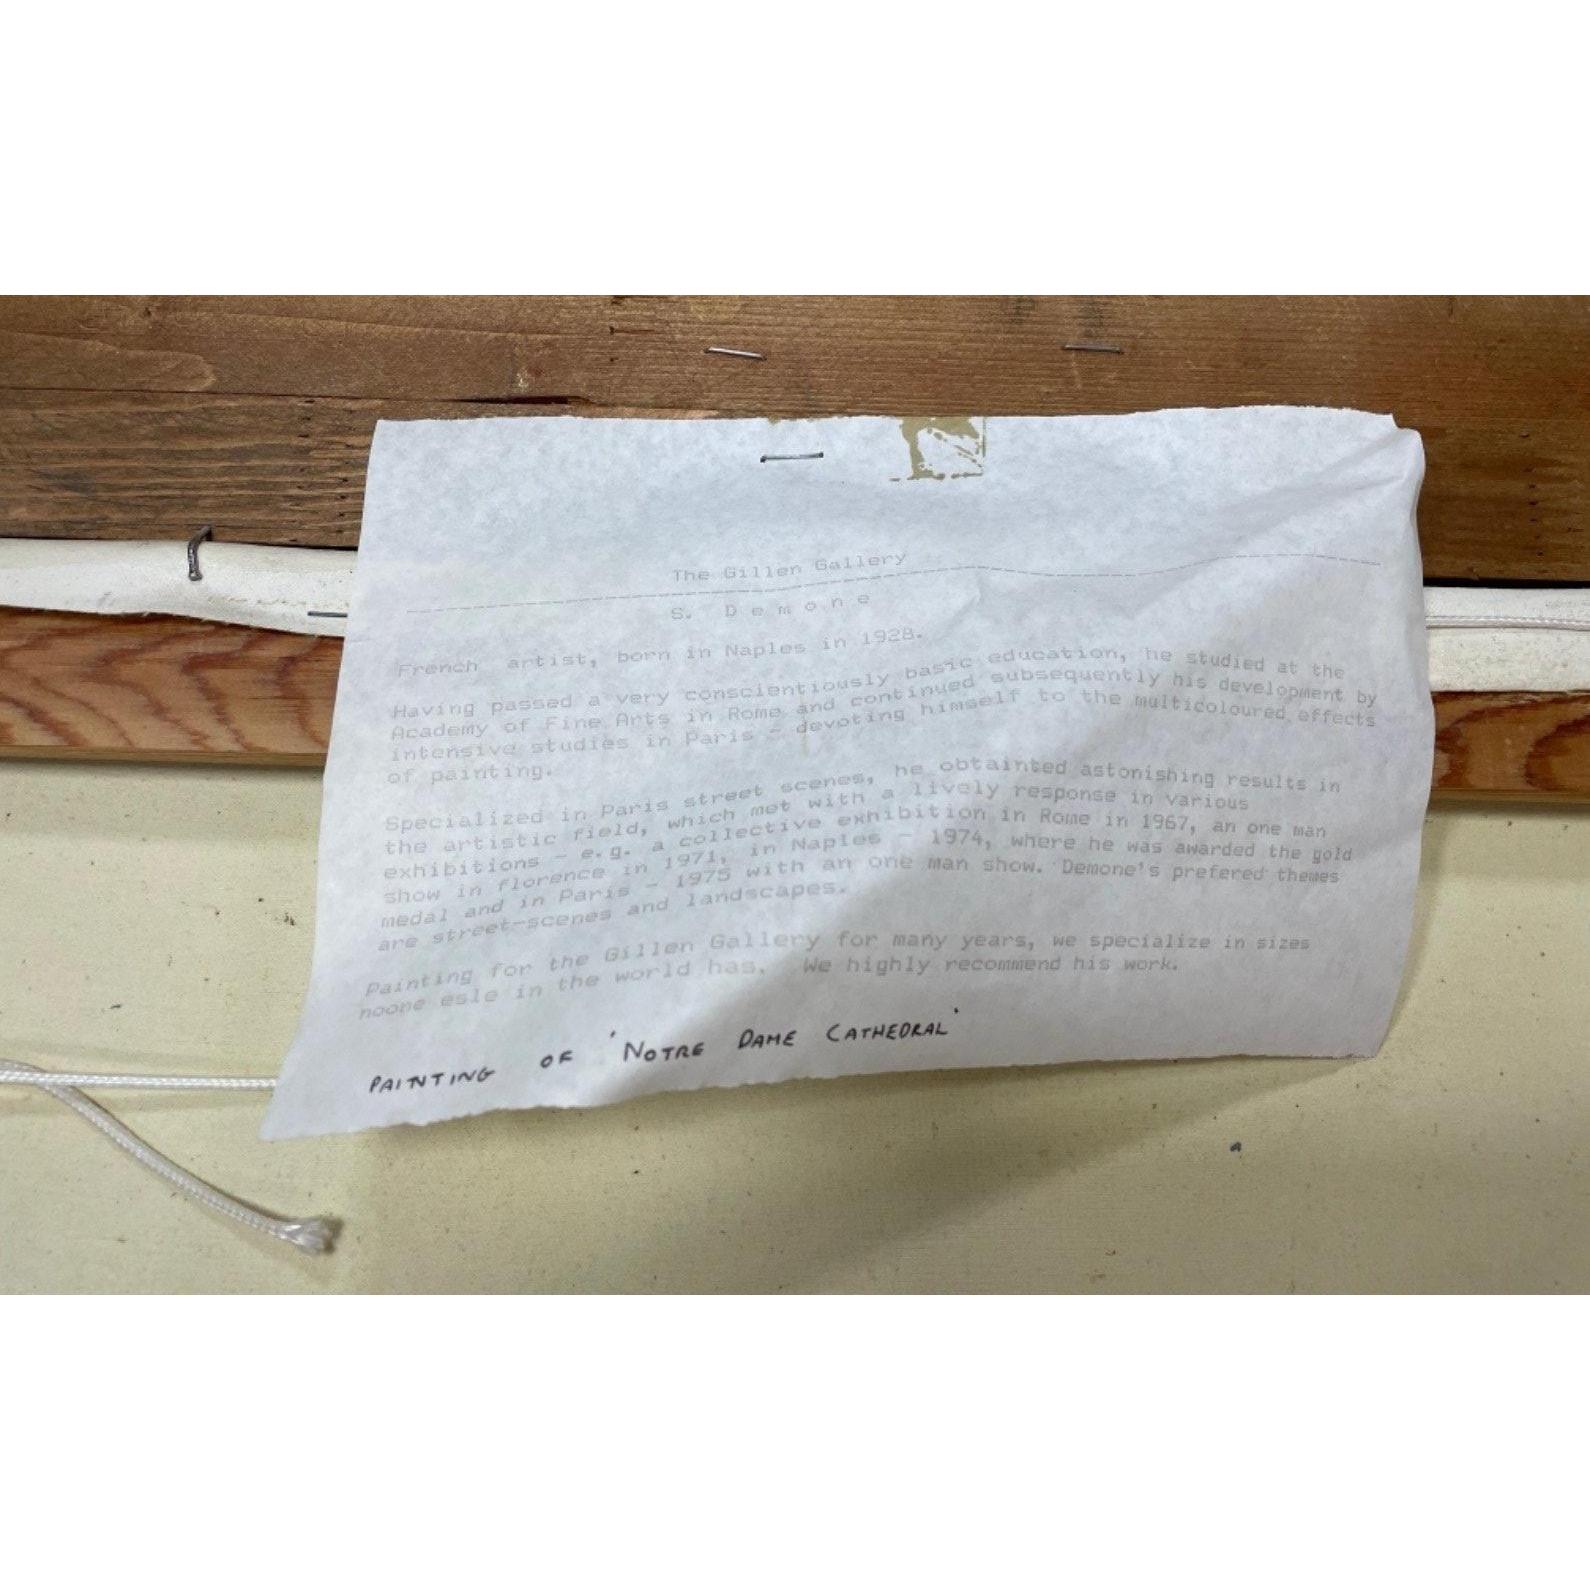 The Gillen Gallery
S. Demone
French artist, born in Naples in 1928.
Having passed a very conscientiously basic education, he studied at the
Academy of Fine Arts in Rome and continued subsequently his development by
intensive studies in Paris - devoting himself to the multicoloured effects
of painting.
Specialized in Paris street scenes, he obtainted astonishing results in
the artistic field, which met with a lively response in various
exhibitions - e.g. a collective exhibition in Rome in 1967, an one man
show in florence in 1971, in Naples - 1974, where he was awarded the gold
medal and in Paris - 1975 with an one man show. Demone's prefered themes
are street-scenes and landscapes.
Painting for the Gillen Gallery for many years, we specialize in sizes
noone esle in the world has. We highly recommend his work.
PAINTING OF 'NOTRE DAME CATHEDRAL'